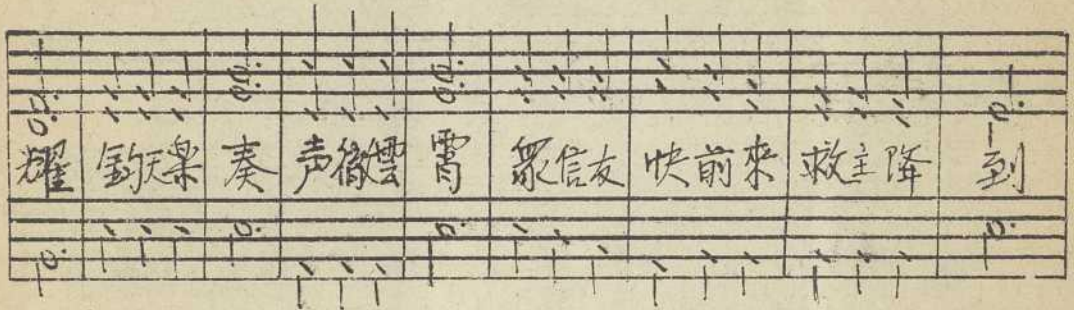 耀 鈞天樂 奏 声徹雲 霄 眾信友 快前來 救主降 到